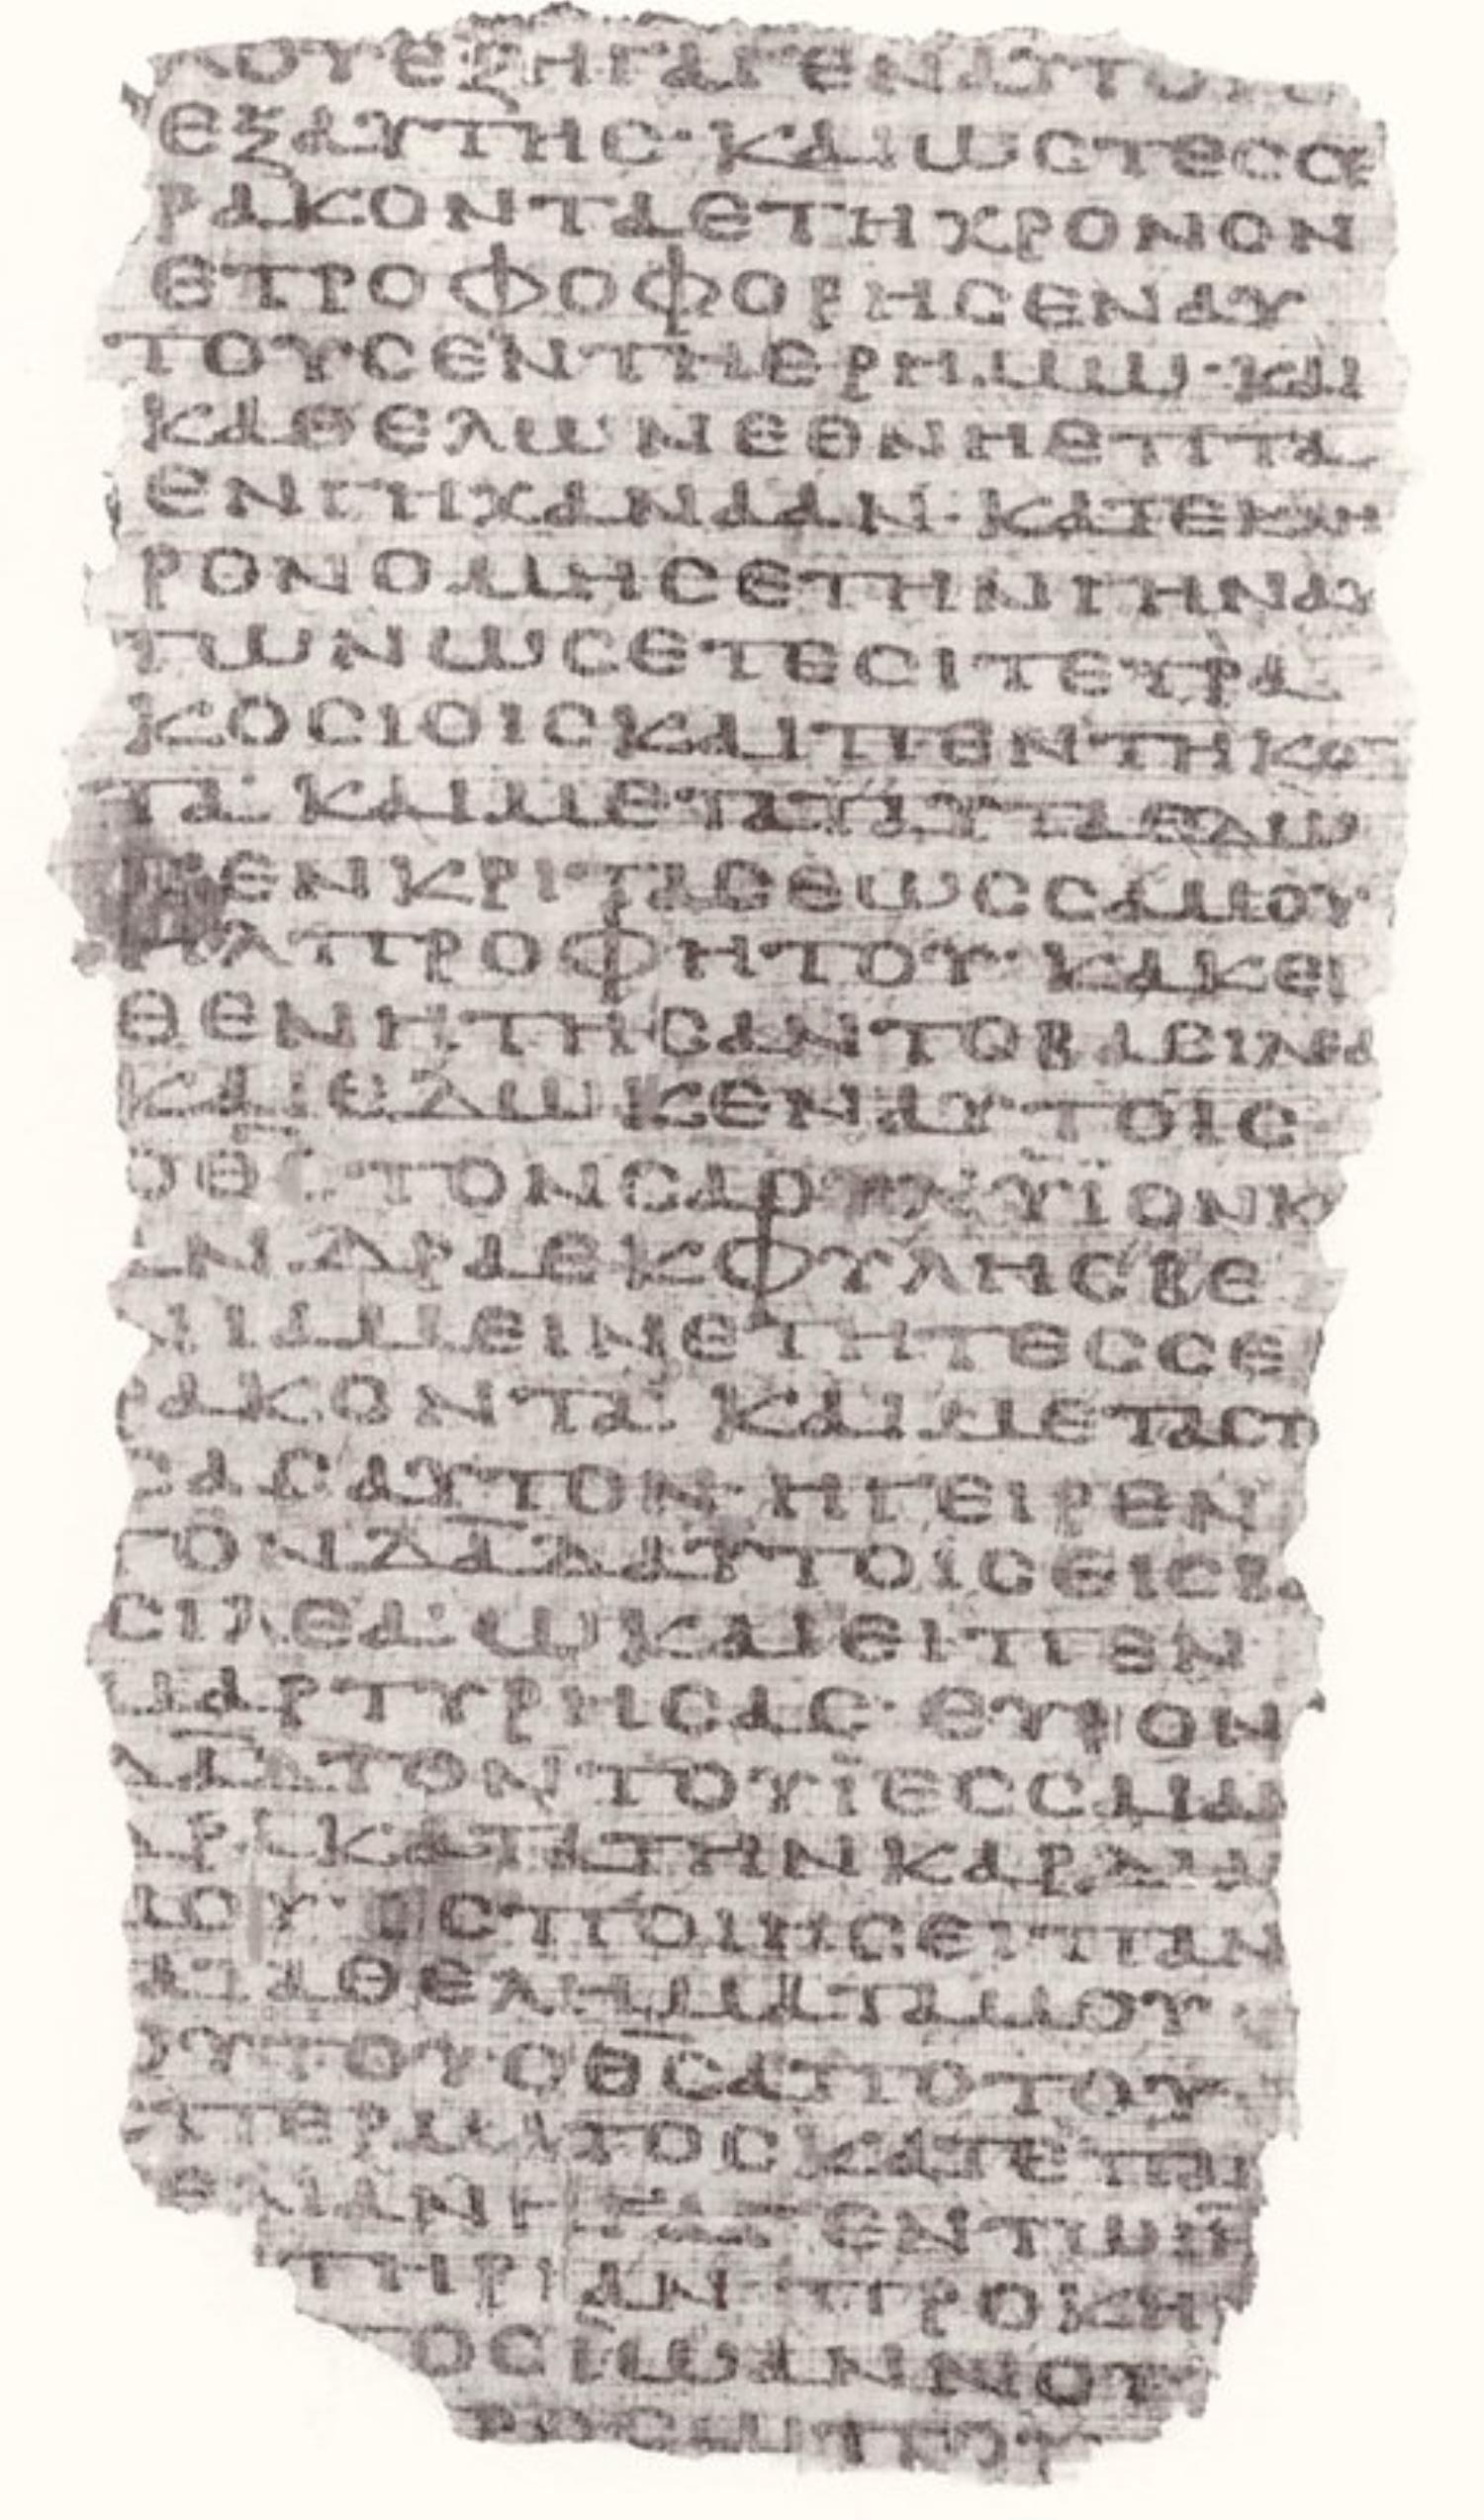 ΛΟΥΕΞΗΓΑΓΕΝΑΥΤΟΥΣ
ΕΞΑΥΤΗϹ· ΚΑΙΩϹΤΕϹϹΕ
ΡΑΚΟΝΤΑΕΤΗΧΡΟΝΟΝ
ΕΤΡΟΦΟΦΟΡΗϹΕΝΑΥ
ΤΟΥϹΕΝΤΗΕΡΗΜΩ· ΚΑΙ
ΚΑΘΕΛΩΝΕΘΝΗΕΠΤΑ
ΕΝΓΗΧΑΝΑΑΝ· ΚΑΤΕΚΛΗ
ΡΟΝΟΜΗϹΕΤΗΝΓΗΝΑΥ
ΤΩΝΩϹΕΤΕϹΙΤΕΤΡΑ
ΚΟϹΙΟΙϹΚΑΙΠΕΝΤΗΚΟ
ΤΑ· ΚΑΙΜΕΤΑΤΑΥΤΑΕΔΩ
ΚΕΝΚΡΙΤΑϹΕΩϹϹΑΜΟΥ
ΗΛΠΡΟΦΗΤΟΥ· ΚΑΚΕΙ
ΘΕΝΗΤΗϹΑΝΤΟΒΑϹΙΛΕΑ
ΚΑΙΕΔΩΚΕΝΑΥΤΟΙϹ
ΟΘ̅Ϲ̅ΤΟΝϹΑΟΥΛΥΪΟΝΚ
ΑΝΔΡΑΕΚΦΥΛΗϹΒΕ
ΝΙΑΜΕΙΝΕΤΗΤΕϹϹΕ
ΡΑΚΟΝΤΑ· ΚΑΙΜΕΤΑϹΤΗ
ϹΑϹΑΥΤΟΝ· ΗΓΕΙΡΕΝ
ΤΟΝΔ̅Α̅Δ̅ΑΥΤΟΙϹΕΙϹΒΑ
ϹΙΛΕΑ· ΩΚΑΙΕΙΠΕΝ
ΜΑΡΤΥΡΗϹΑϹ· ΕΥΡΟΝ
Δ̅Α̅Δ̅ΤΟΝΤΟΥΪΕϹϹΑΙΑΝ
ΔΡΑΚΑΤΑΤΗΝΚΑΡΔΙΑΝ
ΜΟΥ· ΟϹΠΟΙΗϹΕΙΠΑΝ
ΤΑΤΑΘΕΛΗΜΑΤΑΜΟΥ·
ΤΟΥΤΟΥΟΘ̅Ϲ̅ΑΠΟΤΟΥ
ϹΠΕΡΜΑΤΟϹΚΑΤΕΠΑΓ
ΕΛΙΑΝΗΓΑΓΕΝΤΩΙ̅Η̅
ΤΗΡΙΑΝ· ΠΡΟΚΗ
ΤΟϹΪΩΑΝΝΟΥ
ΡΟϹΩΠΟΥ